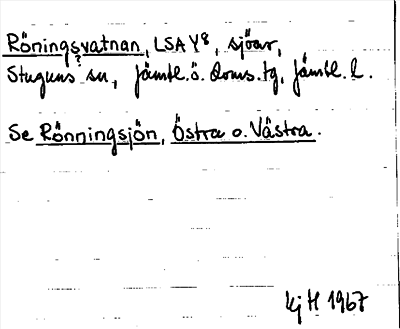 Röningsvatnan, LSA Y8, sjöar,
?
Stuguns sn, Jämtl. ö. doms.tg, Jämtl. l.
Se Rönningsjön, Östra o. Västra.
kj H 1967